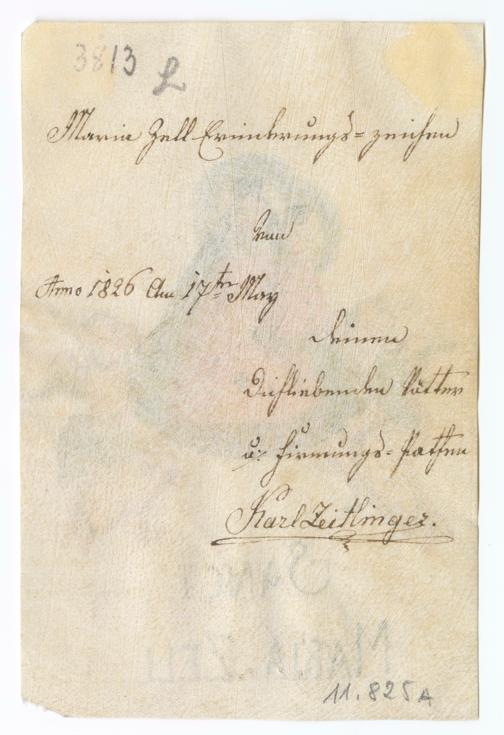 3813 L
Maria Zell Erinnerungs=zeichen
Von
Anno 1826 Am 17ten May
deinen
Dichliebenden Vötter
u: Firmungs=Pathen
Karl Zeitlinger.
SANCT
MARIA. ZELL
11.825A